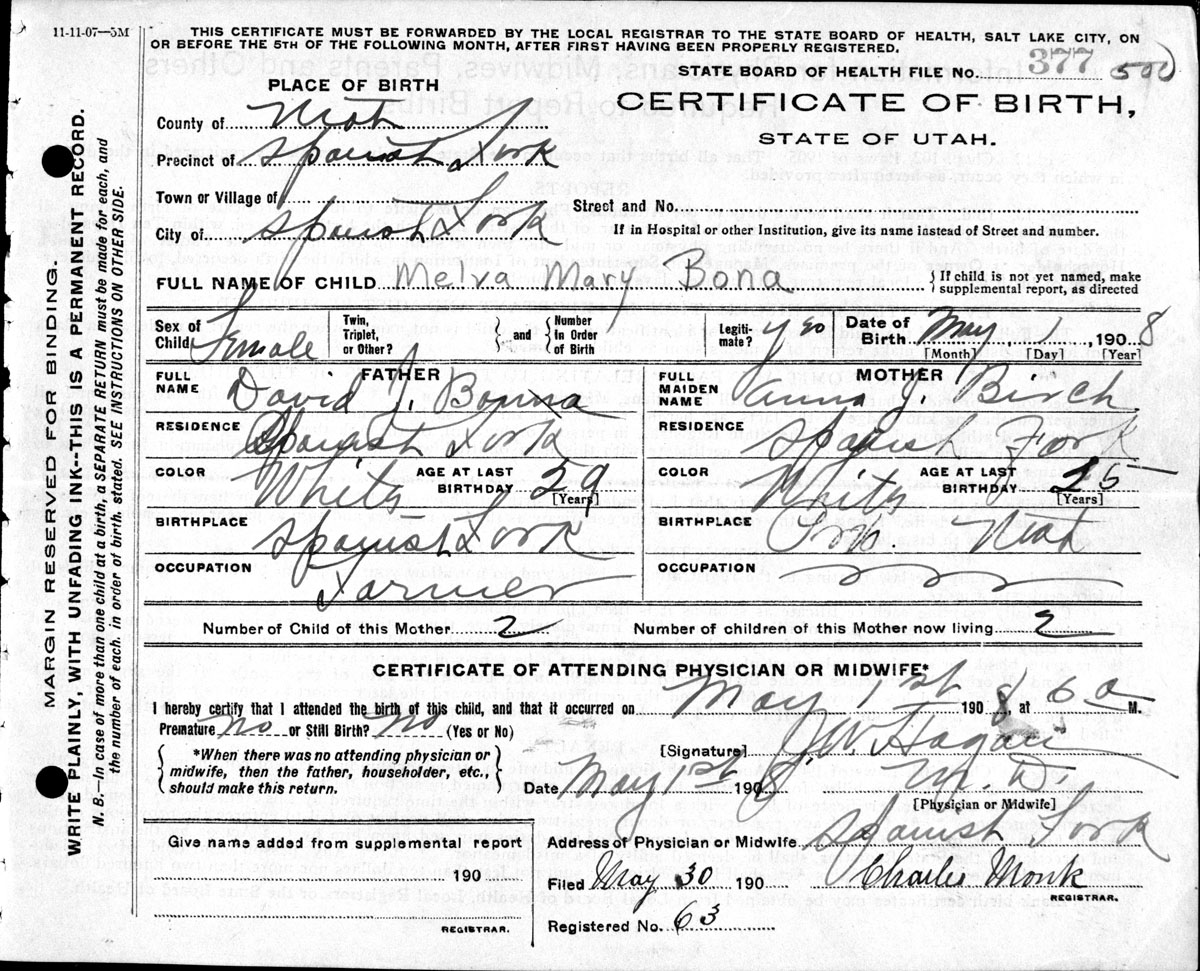 11-11-07—5M
THIS CERTIFICATE MUST BE FORWARDED BY THE LOCAL REGISTRAR TO THE STATE BOARD OF HEALTH, SALT LAKE CITY, ON
OR BEFORE THE 5TH OF THE FOLLOWING MONTH, AFTER FIRST HAVING BEEN PROPERLY REGISTERED.
STATE BOARD OF HEALTH FILE NO. 377
PLACE OF BIRTH
CERTIFICATE OF BIRTH,
STATE OF UTAH.
County of Utah
Precinct of Spanish Fork
Town or Village of
Street and No.
City of Spanish Fork
If in Hospital or other Institution, give its name instead of Street and number.
FULL NAME OF CHILD Melva Mary Bona
If child is not yet named, make
supplemental report, as directed
Sex of Child Female
Twin, Triplet, or Other?
and
Number In Order of Birth
Legiti-mate? Yes
Date of Birth May 1, 1908
[Month] [Day] [Year]
FATHER
FULL NAME David J. Bonna
RESIDENCE Spanish Fork
COLOR White
AGE AT LAST BIRTHDAY 29
[Years]
BIRTHPLACE Spanish Fork
OCCUPATION Farmer
MOTHER
FULL MAIDEN NAME Anna J. Birch
RESIDENCE Spanish Fork
COLOR White
AGE AT LAST BIRTHDAY 25
[Years]
BIRTHPLACE Utah
OCCUPATION
Number of Child of this Mother 2
Number of children of this Mother now living 2
CERTIFICATE OF ATTENDING PHYSICIAN OR MIDWIFE*
I hereby certify that I attended the birth of this child, and that it occurred on May 1st 1908, at 6 a M.
Premature No or Still Birth? No (Yes or No)
*When there was no attending physician or
midwife, then the father, householder, etc.,
should make this return.
[Signature] J W Hagan
Date May 1st 1908 M. D.
[Physician or Midwife]
Give name added from supplemental report
190
REGISTRAR.
Address of Physician or Midwife Spanish Fork
Filed May 30 190 Charlie Monk
REGISTRAR.
Registered No. 63
MARGIN RESERVED FOR BINDING.
WRITE PLAINLY, WITH UNFADING INK--THIS IS A PERMANENT RECORD.
N. B.—In case of more than one child at a birth, a SEPARATE RETURN must be made for each, and
the number of each, in order of birth, stated. SEE INSTRUCTIONS ON OTHER SIDE.